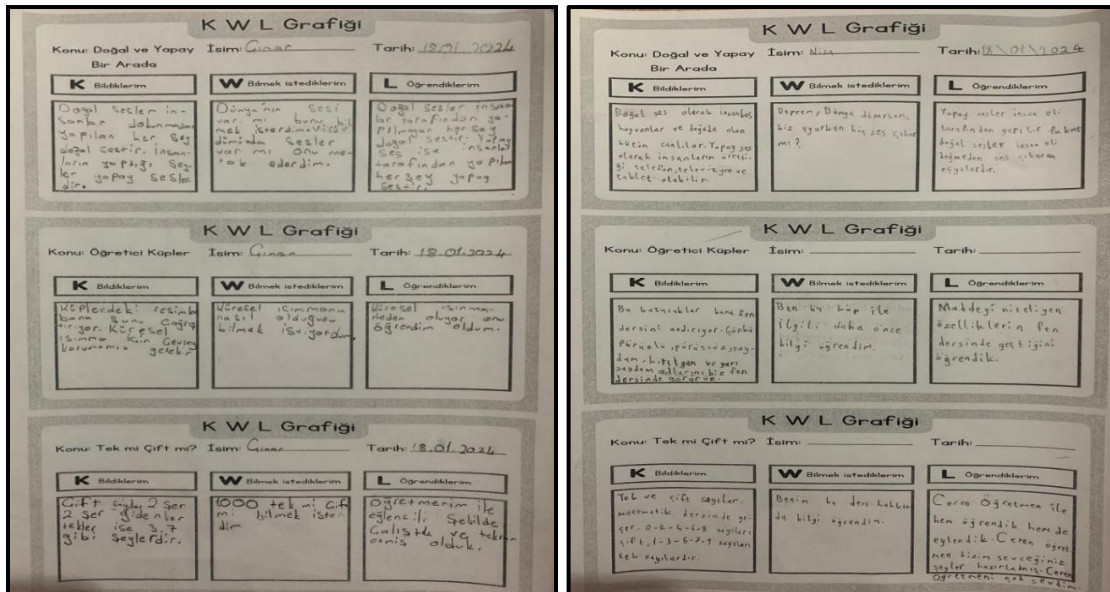 K W L Grafiği
Konu: Doğal ve Yapay Bir Arada İsim: Çınar Tarih: 18.01.2024
K Bildiklerim
Doğal sesler in-
sanlar dokunmadan
yapılan her şey
doğal sestir. insan-
ların yaptığı şey-
ler yapay sesler
dir.
W Bilmek istediklerim
Dünya'nın sesi
var mı bunu bil
mek isterdim. Vücu
dumuzda sesler
var mı onu me-
rak ederdim.
L Öğrendiklerim
Doğal sesler insan
lar tarafından ya-
pılmayan her şey
doğal sestir. Yapay
ses ise insanlar
tarafından yapılan
her şey yapay
sestir.
K W L Grafiği
Konu: Öğretici Küpler İsim: Çınar Tarih: 18.01.2024
K Bildiklerim
Küplerdeki resimler
bana bunu çağrış
tırıyor. Küresel
ısınma için çevreyi
korumamız gerekir
W Bilmek istediklerim
Küresel ısınmanın
nasıl olduğunu
bilmek istiyordum
L Öğrendiklerim
Küresel ısınma
neden oluyor onu
öğrendim oldum.
K W L Grafiği
Konu: Tek mi Çift mi? İsim: Çınar Tarih: 18.01.2024
K Bildiklerim
Çift sayılar 2 şer
2 şer gidenler
tekler ise 3,7
gibi şeylerdir.
W Bilmek istediklerim
1000 tek mi çift
mi bilmek ister
dim
L Öğrendiklerim
Öğretmenim ile
eğlenceli şekilde
çalıştık ve tekrar
etmiş olduk.
K W L Grafiği
Konu: Doğal ve Yapay Bir Arada İsim: Nisa Tarih: 18\01\2024
K Bildiklerim
Doğal ses olarak insanlar,
hayvanlar ve doğada olan
bütün canlılar. Yapay ses
olarak insanların üretti-
ği telefon, televizyon ve
tablet olabilir.
W Bilmek istediklerim
Deprem, Dünya dönerken,
biz uyurken hiç ses çıkar
mı?
L Öğrendiklerim
Yapay sesler insan eli
tarafından yapılır fakat
doğal sesler insan eli
değmeden ses çıkaran
eşyalardır.
K W L Grafiği
Konu: Öğretici Küpler İsim: Tarih:
K Bildiklerim
Bu kutucuklar bana fen
dersini andırıyor. Çünkü
Pürüzlü, pürüzsüz, say-
dam, kırılgan ve yarı
saydam adlarını biz fen
dersinde görürüz.
W Bilmek istediklerim
Ben bu küp ile
ilgili daha önce
bilgi öğrendim.
L Öğrendiklerim
Maddeyi niteliyen
özelliklerin fen
dersinde geçtiğini
öğrendik.
K W L Grafiği
Konu: Tek mi Çift mi? İsim: Tarih:
K Bildiklerim
Tek ve çift sayılar
matematik dersinde ge-
çer. 0-2-4-6-8 sayıları
çift, 1-3-5-7-9 sayıları
tek sayılardır.
W Bilmek istediklerim
Benim bu ders hakkın
da bilgi öğrendim.
L Öğrendiklerim
Ceren Öğretmen ile
hem öğrendik hem de
eylendik. Ceren öğret
men bizim seveceğimiz
şeyler hazırlamış. Ceren
Öğretmeni çok sevdim.